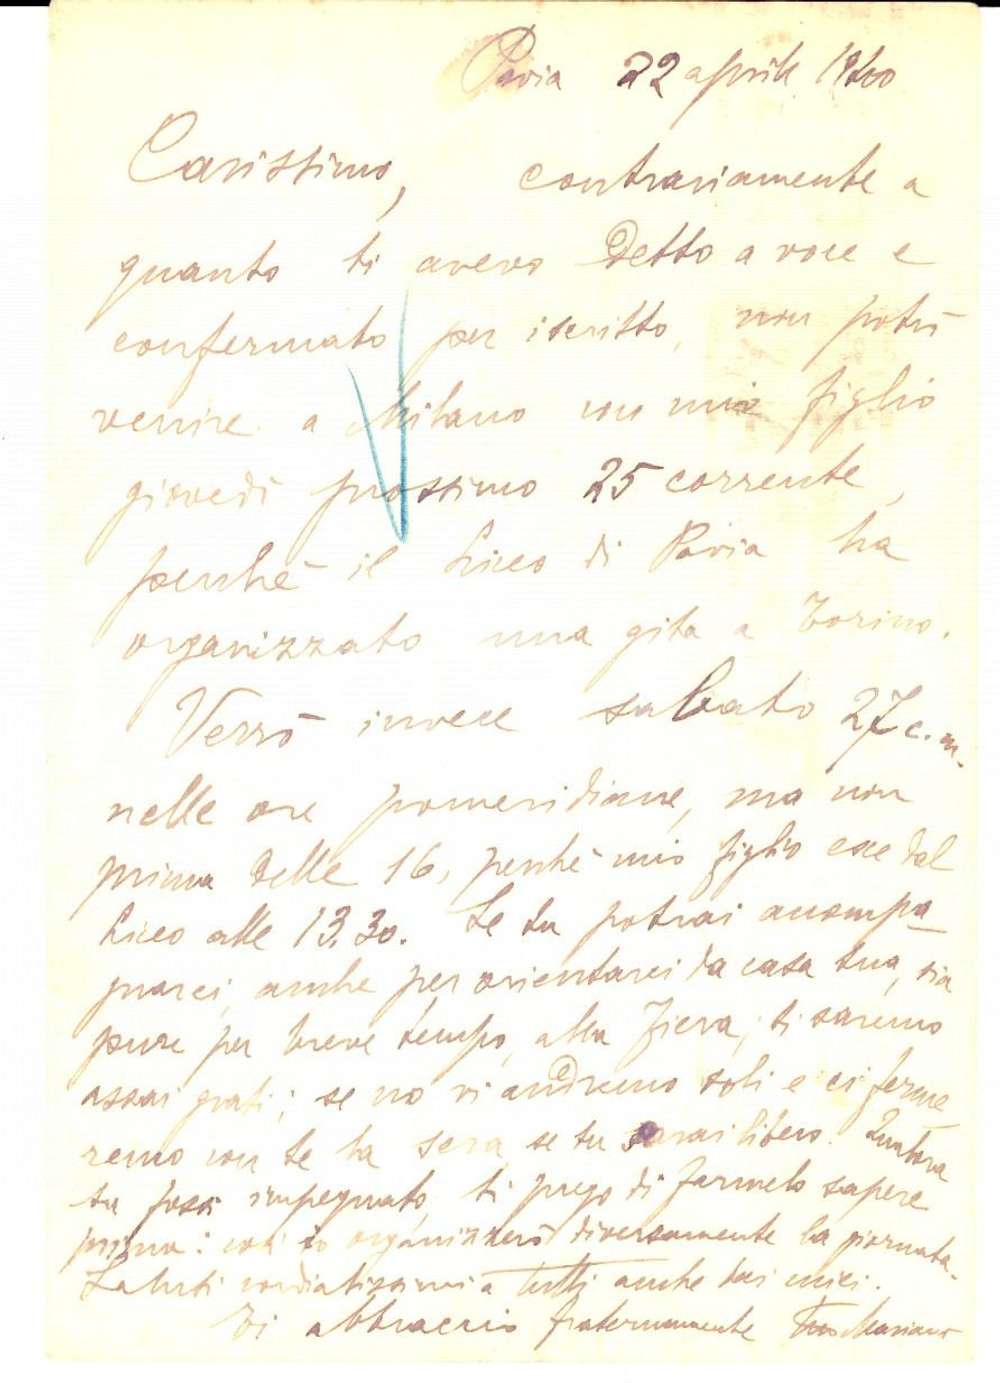 Pavia 22 aprile
Carissimo, contrariamente a
quanto ti avevo detto a voce e
confermato per iscritto, non potrò
venire a Milano con mio figlio
giovedì prossimo 25 corrente,
perchè il Liceo di Pavia ha
organizzato una gita a Torino.
Verrò invece sabato 27 c. m.
nelle ore pomeridiane, ma non
prima delle 16, perchè mio figlio esce dal
Liceo alle 13.30. Se tu potrai accompa-
gnarci, anche per orientarci da casa tua, sia
pure per breve tempo, alla Fiera, ti saremo
assai grati; se no vi andremo soli e ci ferme-
remo con te la sera, se tu sarai libero. Qualora
tu fossi impegnato, ti prego di farmelo sapere
prima: così io organizzerò diversamente la giornata.
Saluti cordialissimi a tutti anche dai miei.
Ti abbraccio fraternamente Tuo Mariano